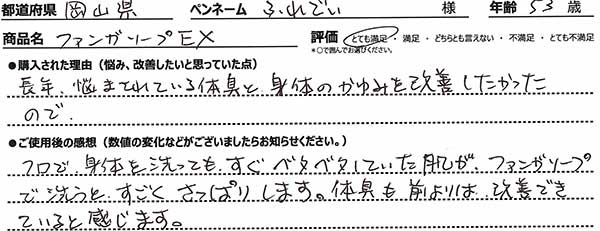 都道府県 岡山県 ペンネーム ふれでぃ 様 年齢 53 歳
商品名 ファンガソープEX 評価 とても満足 ・ 満足 ・ どちらとも言えない ・ 不満足 ・ とても不満足
*○で囲んでお選びください。
●購入された理由（悩み、改善したいと思っていた点）
長年、悩まされている体臭と、身体のかゆみを改善したかった
ので。
●ご使用後の感想（数値の変化などがございましたらお知らせください。）
フロで、身体を洗っても、すぐベタベタしていた肌が、ファンガソープ
で洗うと、すごくさっぱりします。体臭も前よりは、改善でき
ていると感じます。